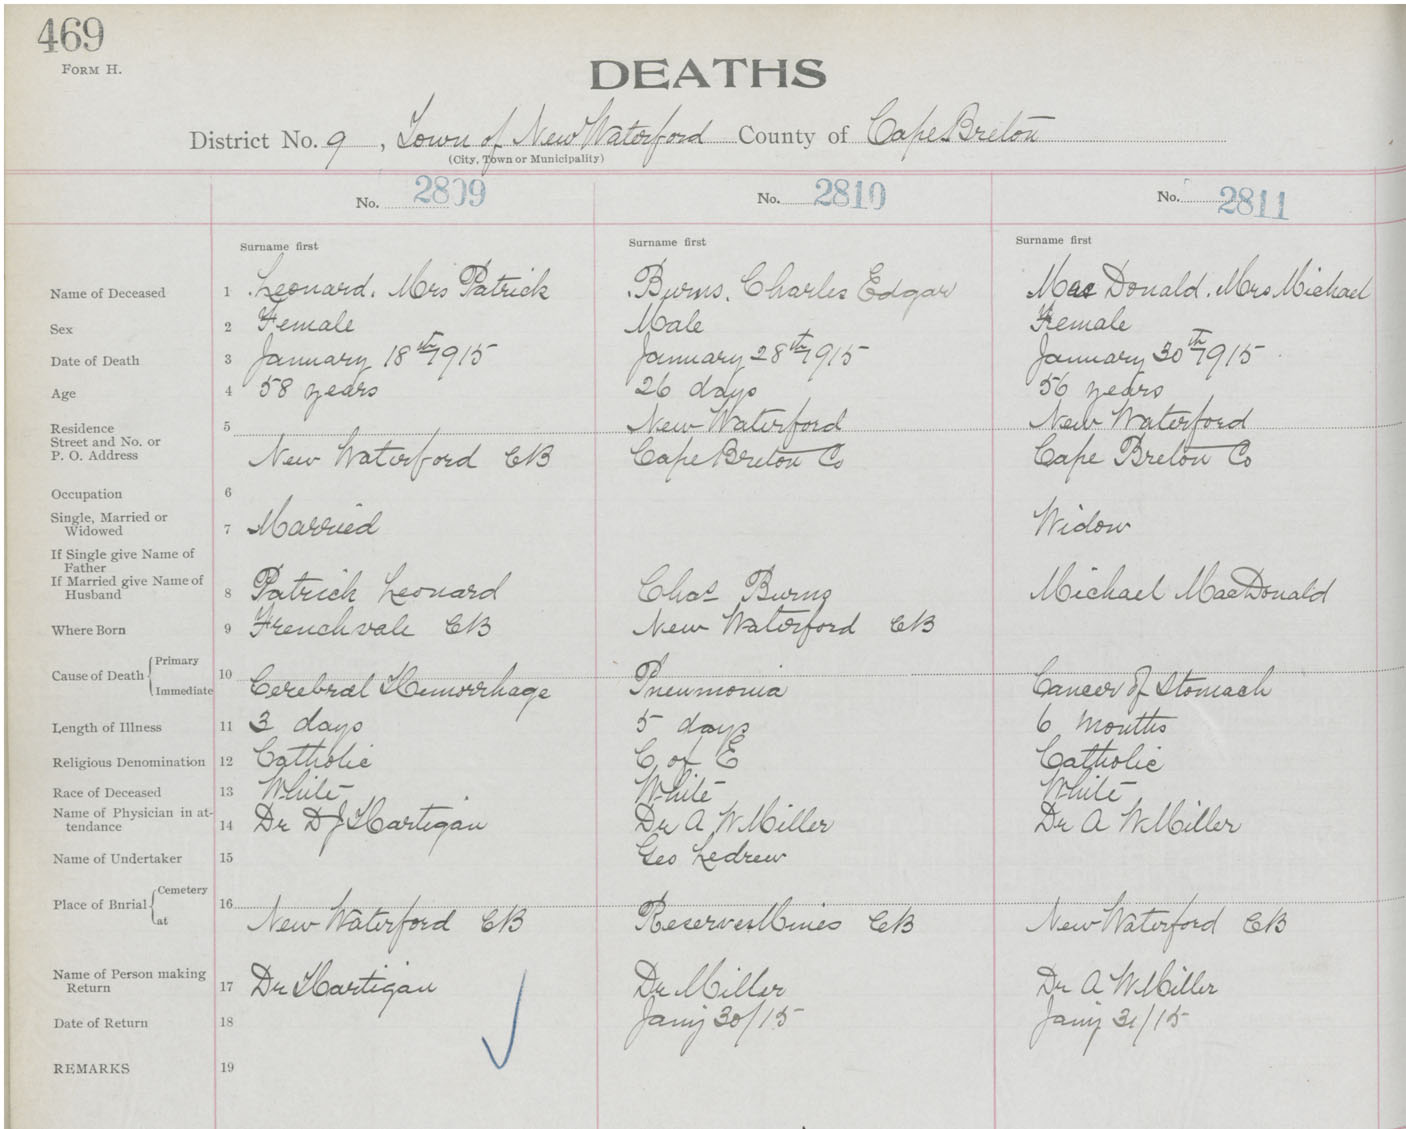 469
FORM H.
DEATHS
District No. 9, Town of New Waterford County of Cape Breton
(City, Town or Municipality)
No. 2809 No. 2810 No. 2811
Surname first Surname first Surname first
Name of Deceased 1 Leonard. Mrs Patrick Burns. Charles Edgar MacDonald. Mrs Michael
Sex 2 Female Male Female
Date of Death 3 January 18th 1915 January 28th 1915 January 30th 1915
Age 4 58 years 26 days 56 years
Residence 5 New Waterford New Waterford
Street and No. or
P. O. Address New Waterford CB Cape Breton Co Cape Breton Co
Occupation 6
Single, Married or
Widowed 7 Married Widow
If Single give Name of
Father
If Married give Name of
Husband 8 Patrick Leonard Chas Burns Michael MacDonald
Where Born 9 Frenchvale CB New Waterford CB
Cause of Death Primary 10
Immediate Cerebral Hemorrhage Pneumonia Cancer of Stomach
Length of Illness 11 3 days 5 days 6 months
Religious Denomination 12 Catholic C of E Catholic
Race of Deceased 13 White White White
Name of Physician in at-
tendance 14 Dr D J Hartigan Dr A W Miller Dr A W Miller
Name of Undertaker 15 Geo Ledrew
Place of Burial Cemetery 16
at New Waterford CB Reserve Mines CB New Waterford CB
Name of Person making
Return 17 Dr Hartigan Dr Miller Dr A W Miller
Date of Return 18 Jany 30/15 Jany 31/15
REMARKS 19